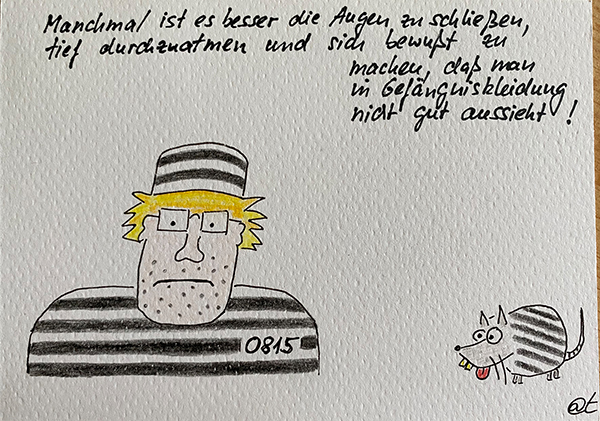 Manchmal ist es besser die Augen zu schließen,
tief durchzuatmen und sich bewußt zu
machen, daß man
in Gefängniskleidung
nicht gut aussieht!
0815
@t